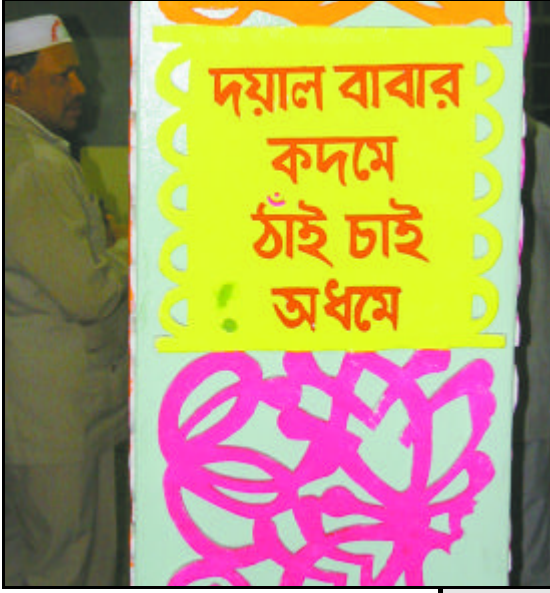 দয়াল বাবার
কদমে
ঠাঁই চাই
অধমে